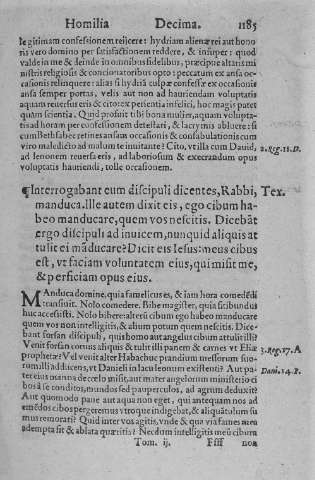 Homilia Decima. 1185
legitimam confessionem reijcere: hydriam alienæ rei aut hono
ris vero domino per satisfactionem reddere, & insuper: quod
valde in me & deinde in omnibus fidelibus, præcipue altaris mi
nistris religiosis & concionatoribus opto: peccatum ex ansa oc-
casionis relinquere: alias si hydria culpæ confessæ ex occasionis
ansa semper portas, velis aut non ad hauriendam voluptatis
aquam reuersurus eris & cito ex persentia infelici, hoc magis patet
quàm scientia. Quid profuit tibi bona mulier, aquam volupta-
tis ad horam per confessionem detestari, & lacrymis abluere: si
cum Bethsabee retines ansam occasionis & confabulationis cum
viro maledicto ad malum te inuitante? Cito, vt illa cum Dauid,
ad lenonem reuersa eris, ad laboriosum & execrandum opus
voluptatis hauriendi, tolle occasionem.
2. Reg. 11. D.
¶Interrogabant eum discipuli dicentes, Rabbi,
manduca. Ille autem dixit eis, ego cibum ha-
beo manducare, quem vos nescitis. Dicebāt
ergo discipuli ad inuicem, nunquid aliquis at
tulit ei māducare? Dicit eis Iesus: meus cibus
est, vt faciam voluntatem eius, qui misit me,
& perficiam opus eius.
Tex.
MAnduca domine, quia famelicus es, & iam hora comedēdi
transiuit. Nolo comedere. Bibe magister, quia sitibundus
huc accessisti. Nolo bibere: alterū cibum ego habeo manducare
quem vos non intelligitis, & alium potum quem nescitis. Dice-
bant forsan discipuli, quis homo aut angelus cibum attulit illi?
Venit forsan coruus aliquis & tulit illi panem & carnes vt Eliæ
prophetæ? Vel venit alter Habachuc prandium messorum suo-
rum illi adducens, vt Danieli in lacu leonum existenti? Aut pa-
ter eius manna de cœlo misit, aut mater angelorum ministerio ci
bos à se conditos, mundos sed pauperculos, ad agrum deduxit?
Aut quomodo pane aut aqua non eget, qui antequam nos ad
emēdos cibos pergeremus vtroque indigebat, & aliquātulum su
mus remorati? Quid inter vos agitis, vnde & quo via fames mea
adempta sit & ablata quæritis? Necdum intelligitis meū cibum
3. Reg. 17. A
Dani. 14. F.
Tom. ij. Ffff non